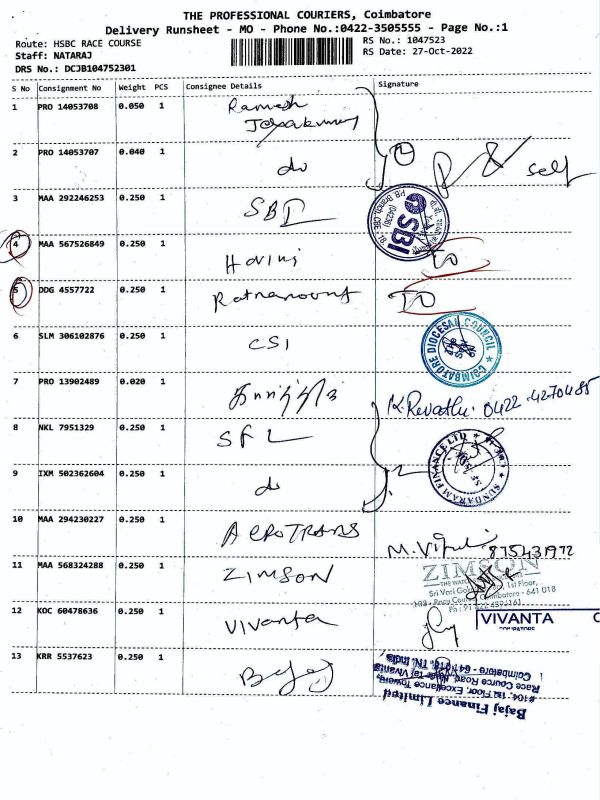 THE PROFESSIONAL COURIERS, Coimbatore
Delivery Runsheet - MO - Phone No.:0422-3505555 - Page No.:1
Route: HSBC RACE COURSE
RS No.: 1047523
Staff: NATARAJ
RS Date: 27-Oct-2022
DRS No.: DCJB104752301
S No Consignment No Weight PCS Consignee Details Signature
1 PRO 14053708 0.050 1 Ramesh
2 PRO 14053707 0.040 1 do 2 self
3 MAA 292246253 0.250 1 SBI
SBI
4 MAA 567526849 0.250 1 Harini TO
5 DDG 4557722 0.250 1 TO
6 SLM 306102876 0.250 1 CSI
COIMBATORE DIOCESAN COUNCIL
7 PRO 13902489 0.020 1 K. Revathi. 0422-4270485
8 NKL 7951329 0.250 1 SFL
SUNDARAM FINANCE LTD
9 IXM 502362604 0.250 1 do 2
10 MAA 294230227 0.250 1 AEROTRANS M.
11 MAA 568324288 0.250 1 ZIMSON
ZIMSON
1st Floor,
Coimbatore - 641 018
12 KOC 60478636 0.250 1 Vivanta
VIVANTA
13 KRR 5537623 0.250 1 Bajaj
Bajaj Finance Limited
#104, 1st Floor, Excellance Towers,
Race Course Road, Near Taj Vivanta
Coimbatore - 641 018. TN. India